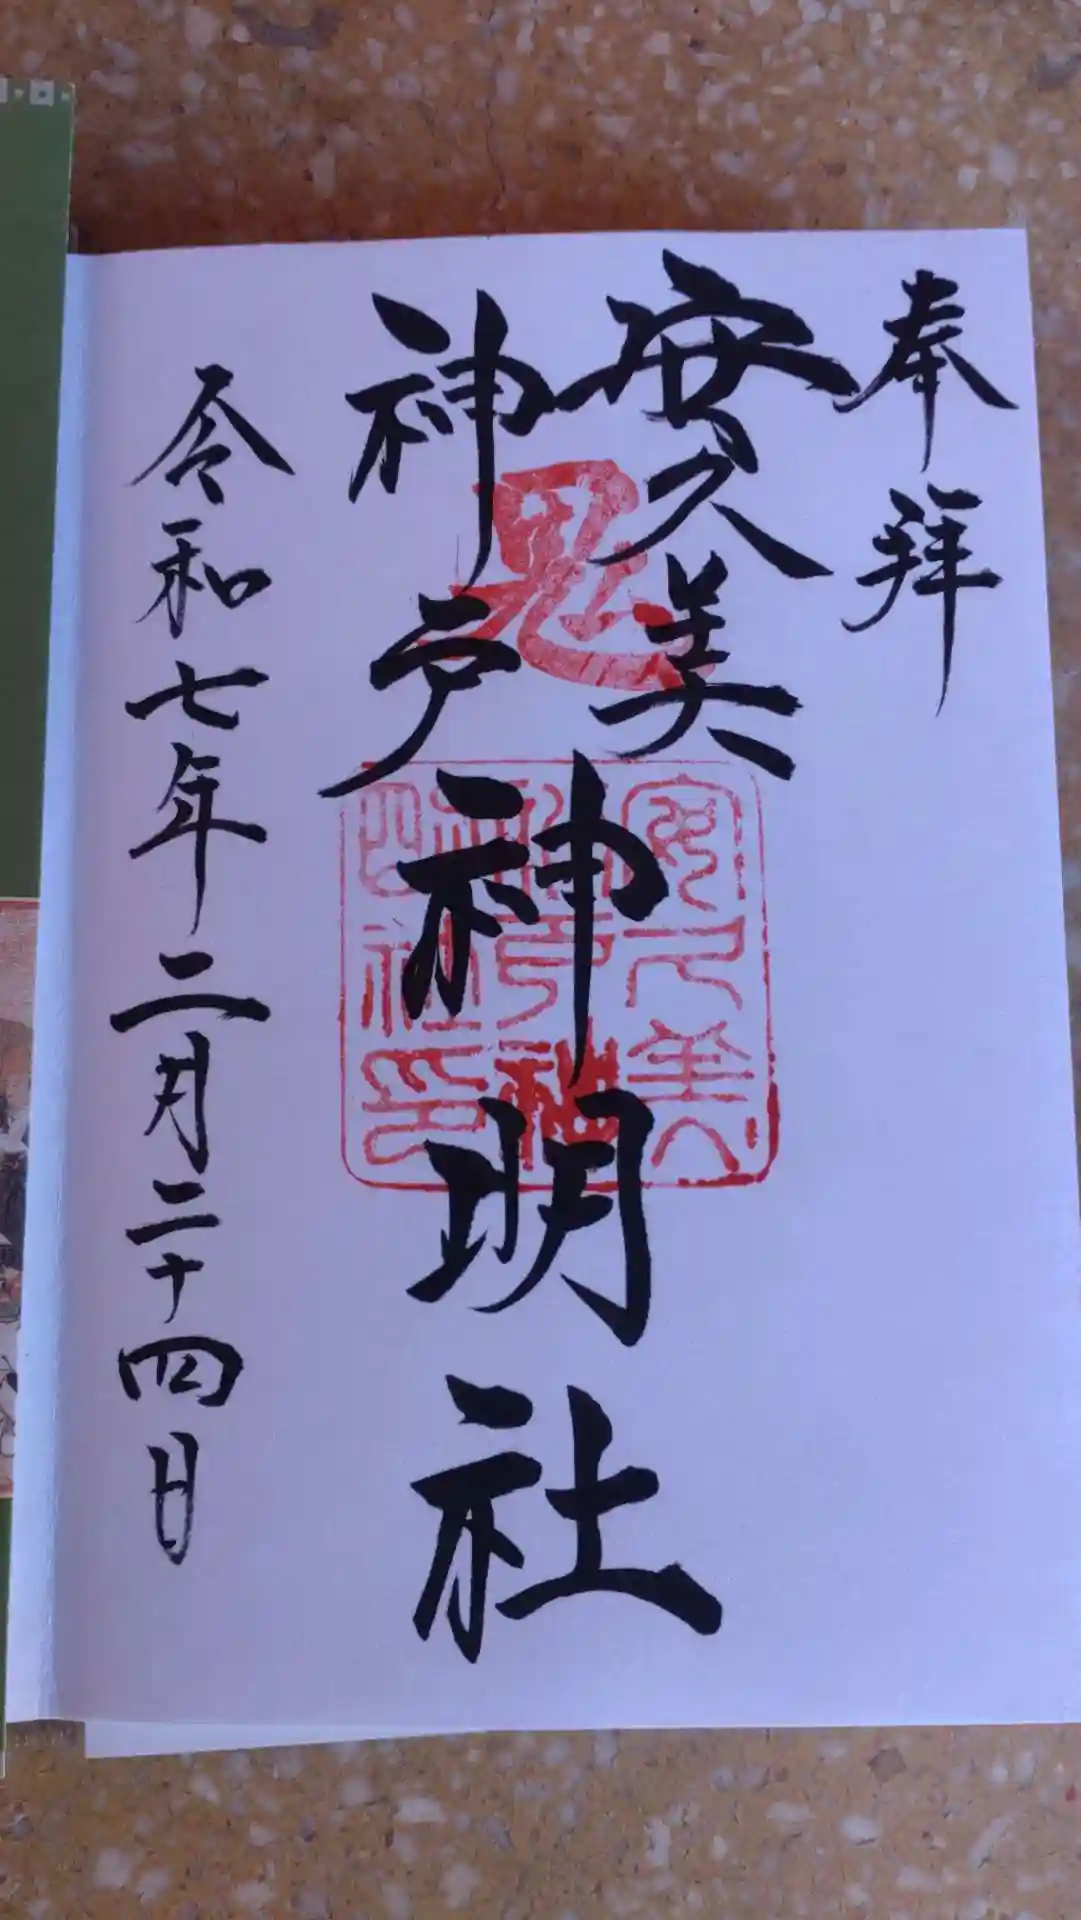 奉拝
安久美
神戸
神明社
鬼
安久美
神戸神
明社印
令和七年二月二十四日